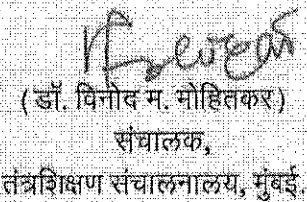 (डॉ. विनोद म. मोहितकर)
संचालक,
तंत्रशिक्षण संचालनालय, मुंबई